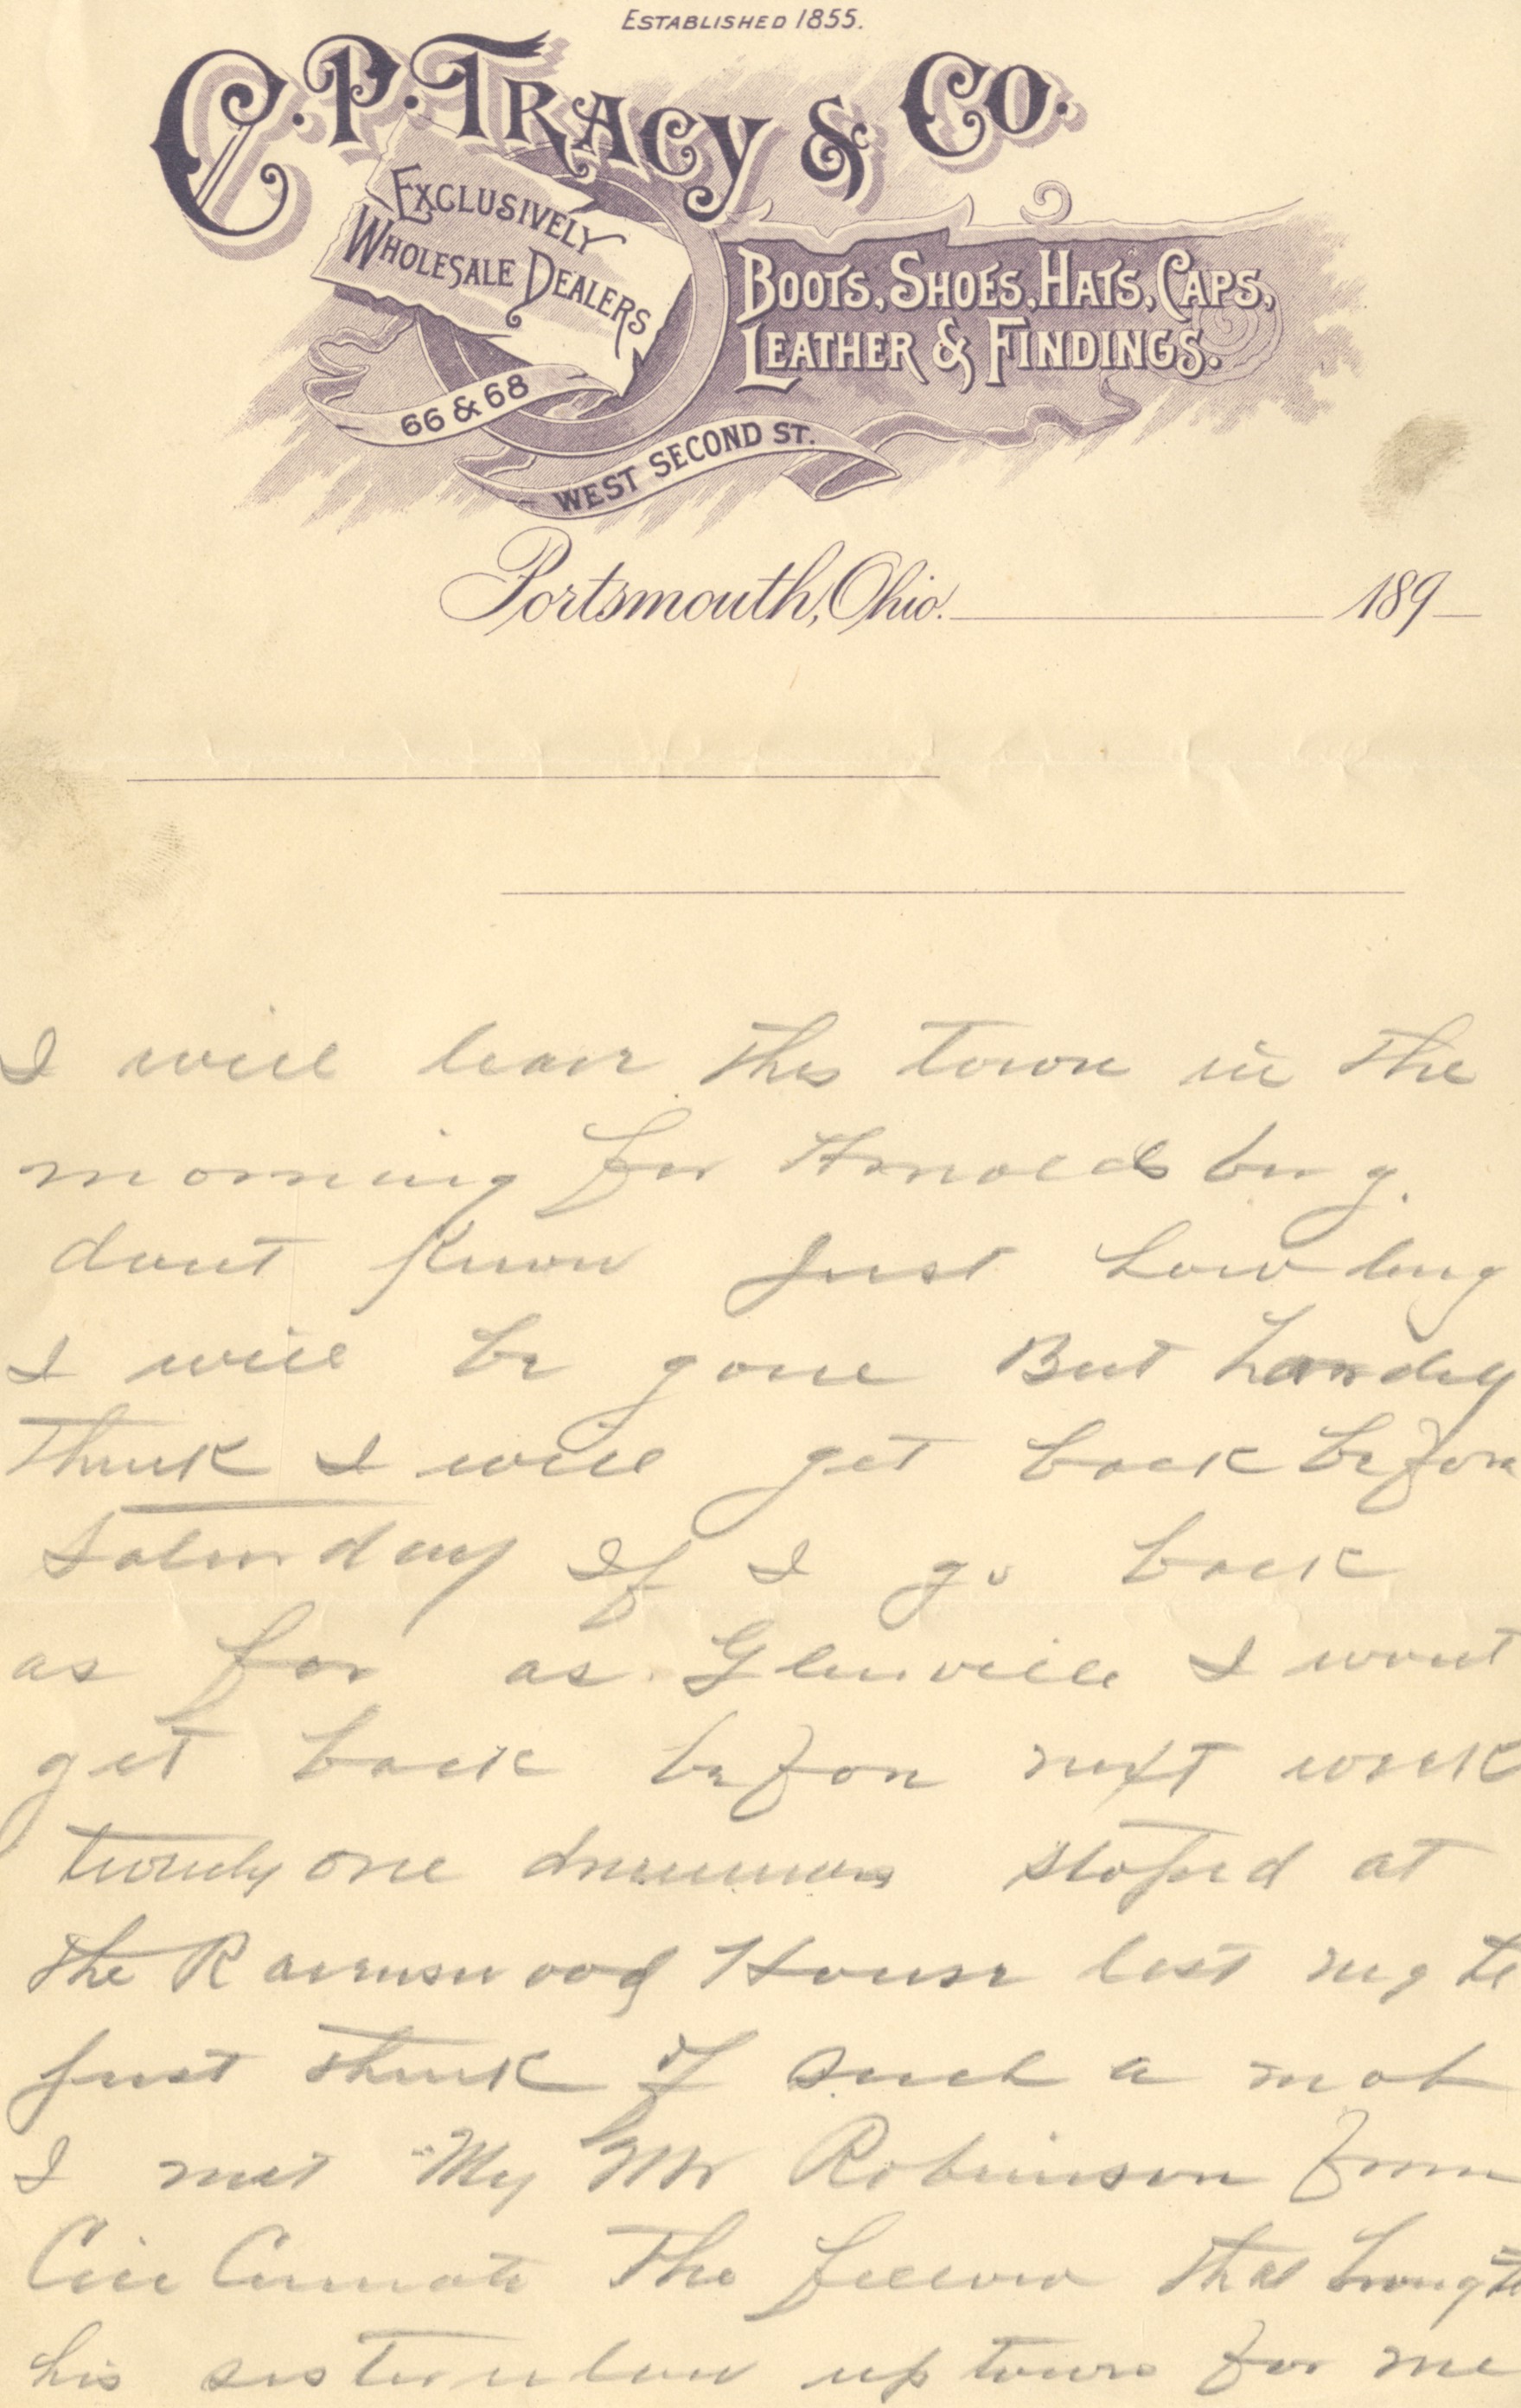 ESTABLISHED 1855.
C. P. TRACY & CO.
EXCLUSIVELY
WHOLESALE DEALERS
BOOTS, SHOES, HATS, CAPS,
LEATHER & FINDINGS.
66 & 68
WEST SECOND ST.
Portsmouth, Ohio. 189
I will leave this town in the
morning for Arnoldsburg.
dont know just how long
I will be gone But hardly
think I will get back before
Saturday If I go back
as far as Glenville I wont
get back before next week
twenty one drummers stoped at
the Ravenswood House last night
just think of such a mob
I met "My Mr Robinson from
Cin Cinnati The fellow that brought
his sister n law up town for me